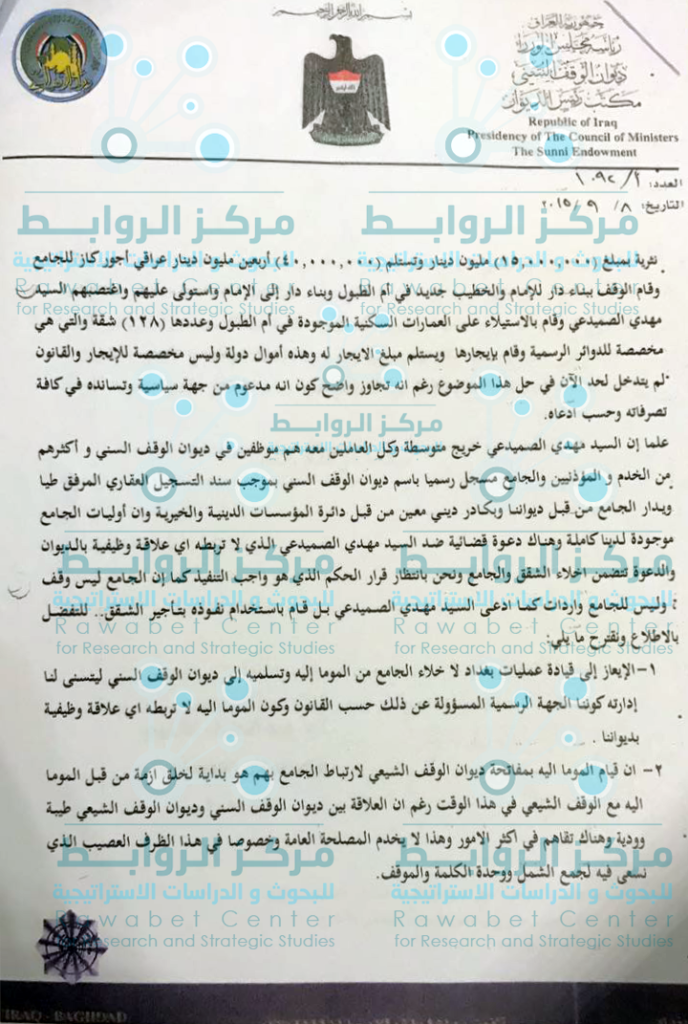 بسم الله الرحمن الرحيم
جمهورية العراق
رئاسة مجلس الوزراء
ديوان الوقف السني
مكتب رئيس الديوان
Republic of Iraq
Presidency of The Council of Ministers
The Sunni Endowment
العدد: ١٠٩٢/٢
التاريخ: ٨ / ٩ / ٢٠١٥
نثرية بمبلغ (١٥,٠٠٠,٠٠٠) مليون دينار وتستلم (٤٠,٠٠٠,٠٠٠) أربعين مليون دينار عراقي أجور كاز للجامع
وقام الوقف ببناء دار للإمام والخطيب جديد في أم الطبول وبناء دار إلى الإمام واستولى عليهم واغتصبهم السيد
مهدي الصميدعي وقام بالاستيلاء على العمارات السكنية الموجودة في أم الطبول وعددها (١٢٨) شقة والتي هي
مخصصة للدوائر الرسمية وقام بإيجارها ويستلم مبلغ الايجار له وهذه أموال دولة وليس مخصصة للإيجار والقانون
لم يتدخل لحد الآن في حل هذا الموضوع رغم انه تجاوز واضح كون انه مدعوم من جهة سياسية وتسانده في كافة
تصرفاته وحسب ادعاه.
علما إن السيد مهدي الصميدعي خريج متوسطة وكل العاملين معه هم موظفين في ديوان الوقف السني و أكثرهم
من الخدم و المؤذنيين والجامع مسجل رسميا باسم ديوان الوقف السني بموجب سند التسجيل العقاري المرفق طيا
ويدار الجامع من قبل ديواننا وبكادر ديني معين من قبل دائرة المؤسسات الدينية والخيرية وان أوليات الجامع
موجودة لدينا كاملة وهناك دعوة قضائية ضد السيد مهدي الصميدعي الذي لا تربطه اي علاقة وظيفية بالديوان
والدعوة تتضمن اخلاء الشقق والجامع ونحن بانتظار قرار الحكم الذي هو واجب التنفيذ كما إن الجامع ليس وقف
وليس للجامع واردات كما ادعى السيد مهدي الصميدعي بل قام باستخدام نفوذه بتأجير الشقق.. للتفضل
بالاطلاع ونقترح ما يلي:
١- الإيعاز إلى قيادة عمليات بغداد لا خلاء الجامع من الموما إليه وتسلميه إلى ديوان الوقف السني ليتسنى لنا
إدارته كوننا الجهة الرسمية المسؤولة عن ذلك حسب القانون وكون الموما اليه لا تربطه اي علاقة وظيفية
بديواننا .
٢- ان قيام الموما اليه بمفاتحة ديوان الوقف الشيعي لارتباط الجامع بهم هو بداية لخلق ازمة من قبل الموما
اليه مع الوقف الشيعي في هذا الوقت رغم ان العلاقة بين ديوان الوقف السني وديوان الوقف الشيعي طيبة
وودية وهناك تفاهم في اكثر الامور وهذا لا يخدم المصلحة العامة وخصوصا في هذا الظرف العصيب الذي
نسعى فيه لجمع الشمل ووحدة الكلمة والموقف.
مركز الروابط
للبحوث و الدراسات الاستراتيجية
Rawabet Center
for Research and Strategic Studies
IRAQ - BAGHDAD